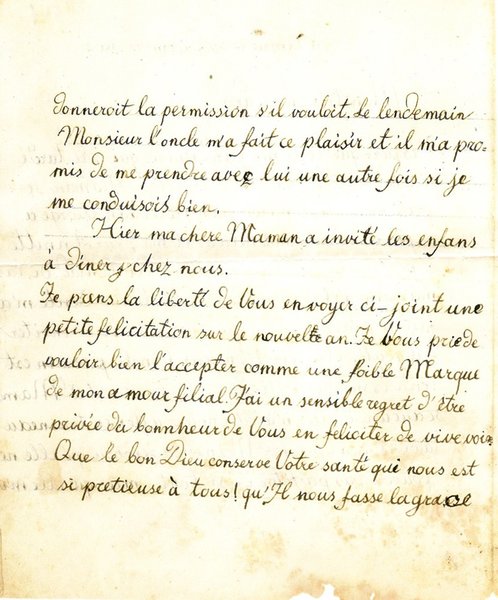 donneroit la permission s'il vouloit. Le lendemain
Monsieur l'oncle m'a fait ce plaisir et il m'a pro-
mis de me prendre avec lui une autre fois si je
me conduisois bien.
Hier ma chere Maman a invité les enfans
à diner chez nous.
Je prens la liberté de Vous envoyer ci-joint une
petite felicitation sur le nouvelle an. Je Vous prie de
vouloir bien l'accepter comme une foible Marque
de mon amour filial. J'ai un sensible regret d'être
privée du bonheur de Vous en feliciter de vive voix
Que le bon Dieu conserve Votre santé qui nous est
si pretieuse à tous! qu'Il nous fasse la grace